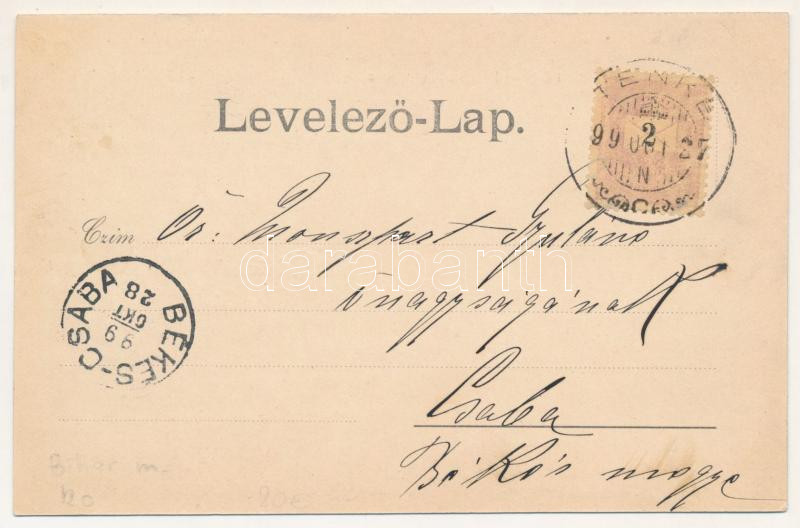 Levelező-Lap.
TENKE
2
99 OKT 27
Czim Őz: Monspart Gyuláné
őnagyságának
Csaba
Békés megye
BÉKÉS-CSABA
99
OKT
28
darabanth
Bihar m.
20